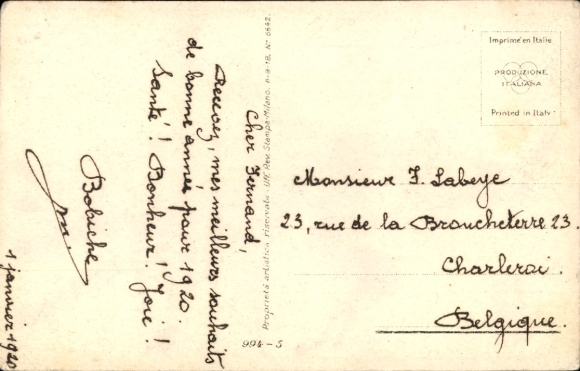 Cher Fernand,
Recevez, mes meilleurs souhaits
de bonne année pour 1920.
Santé! Bonheur! Joie!
Bobiche
1 janvier 1920
Proprietà artistica riservata - Uff. Rev. Stampa-Milano,
994-5
Imprimé en Italie
PRODUZIONE
ITALIANA
Printed in Italy
Monsieur F. Labeye
23, rue de la Broucheterre 23.
Charleroi.
Belgique.